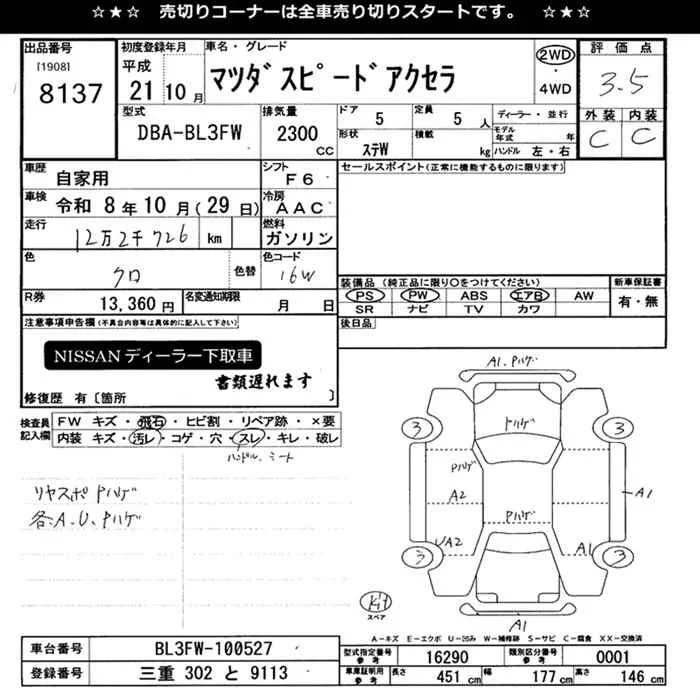 ☆★☆ 売切りコーナーは全車売り切りスタートです。 ☆★☆
出品番号
[1908]
8137
初度登録年月
平成
21 10 月
車名・グレード
マツダスピードアクセラ
2WD
・
4WD
評価点
3.5
外装 内装
C C
型式
DBA-BL3FW
排気量
2300 CC
ドア 5
定員 5 人
形状 ステW
積載 kg
ディーラー・並行
モデル年式 年
ハンドル 左・右
車歴
自家用
シフト
F6
車検
令和 8 年 10 月 (29 日)
冷房
AAC
走行
12万2千726 km
燃料
ガソリン
色
クロ
色替
色コード
16W
R券
13,360 円
名変通知期限
月 日
セールスポイント(正常に機能するものに限ります)
装備品(純正品に限り○をつけてください)
PS PW ABS エアB AW
SR ナビ TV カワ
新車保証書
有・無
後日品
注意事項申告欄(不具合内容等は具体的に記入して下さい)
NISSANディーラー下取車
書類遅れます
修復歴 有〔箇所 〕
検査員記入欄
FW キズ・飛石・ヒビ割・リペア跡・×要
内装 キズ・汚レ・コゲ・穴・スレ・キレ・破レ
ハンドル、シート
リヤスポPハゲ
各:A.U.Pハゲ
A1.Pハゲ
トハゲ
3 3
Pハゲ
A2
A1
Pハゲ
A2
A1
3 3
Kit
スペア
A1
A-キズ E-エクボ U-凹み W-補修跡 S-サビ C-腐食 XX-交換済
車台番号
BL3FW-100527
登録番号
三重 302 と 9113
型式指定番号
参考
16290
類別区分番号
参考
0001
車庫証明用
参考
長さ 451 cm
幅 177 cm
高さ 146 cm